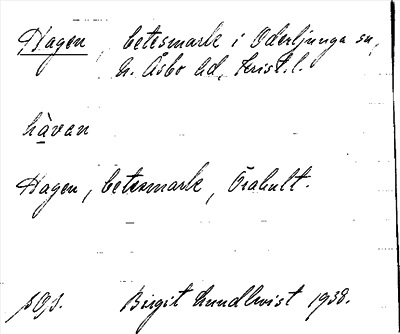 Hagen, betesmark i Oderljunga sn,
N. Åsbo hd, Krist. l.
hàvan
Hagen, betesmark, Örahult.
Birgit Lundkvist 1938.